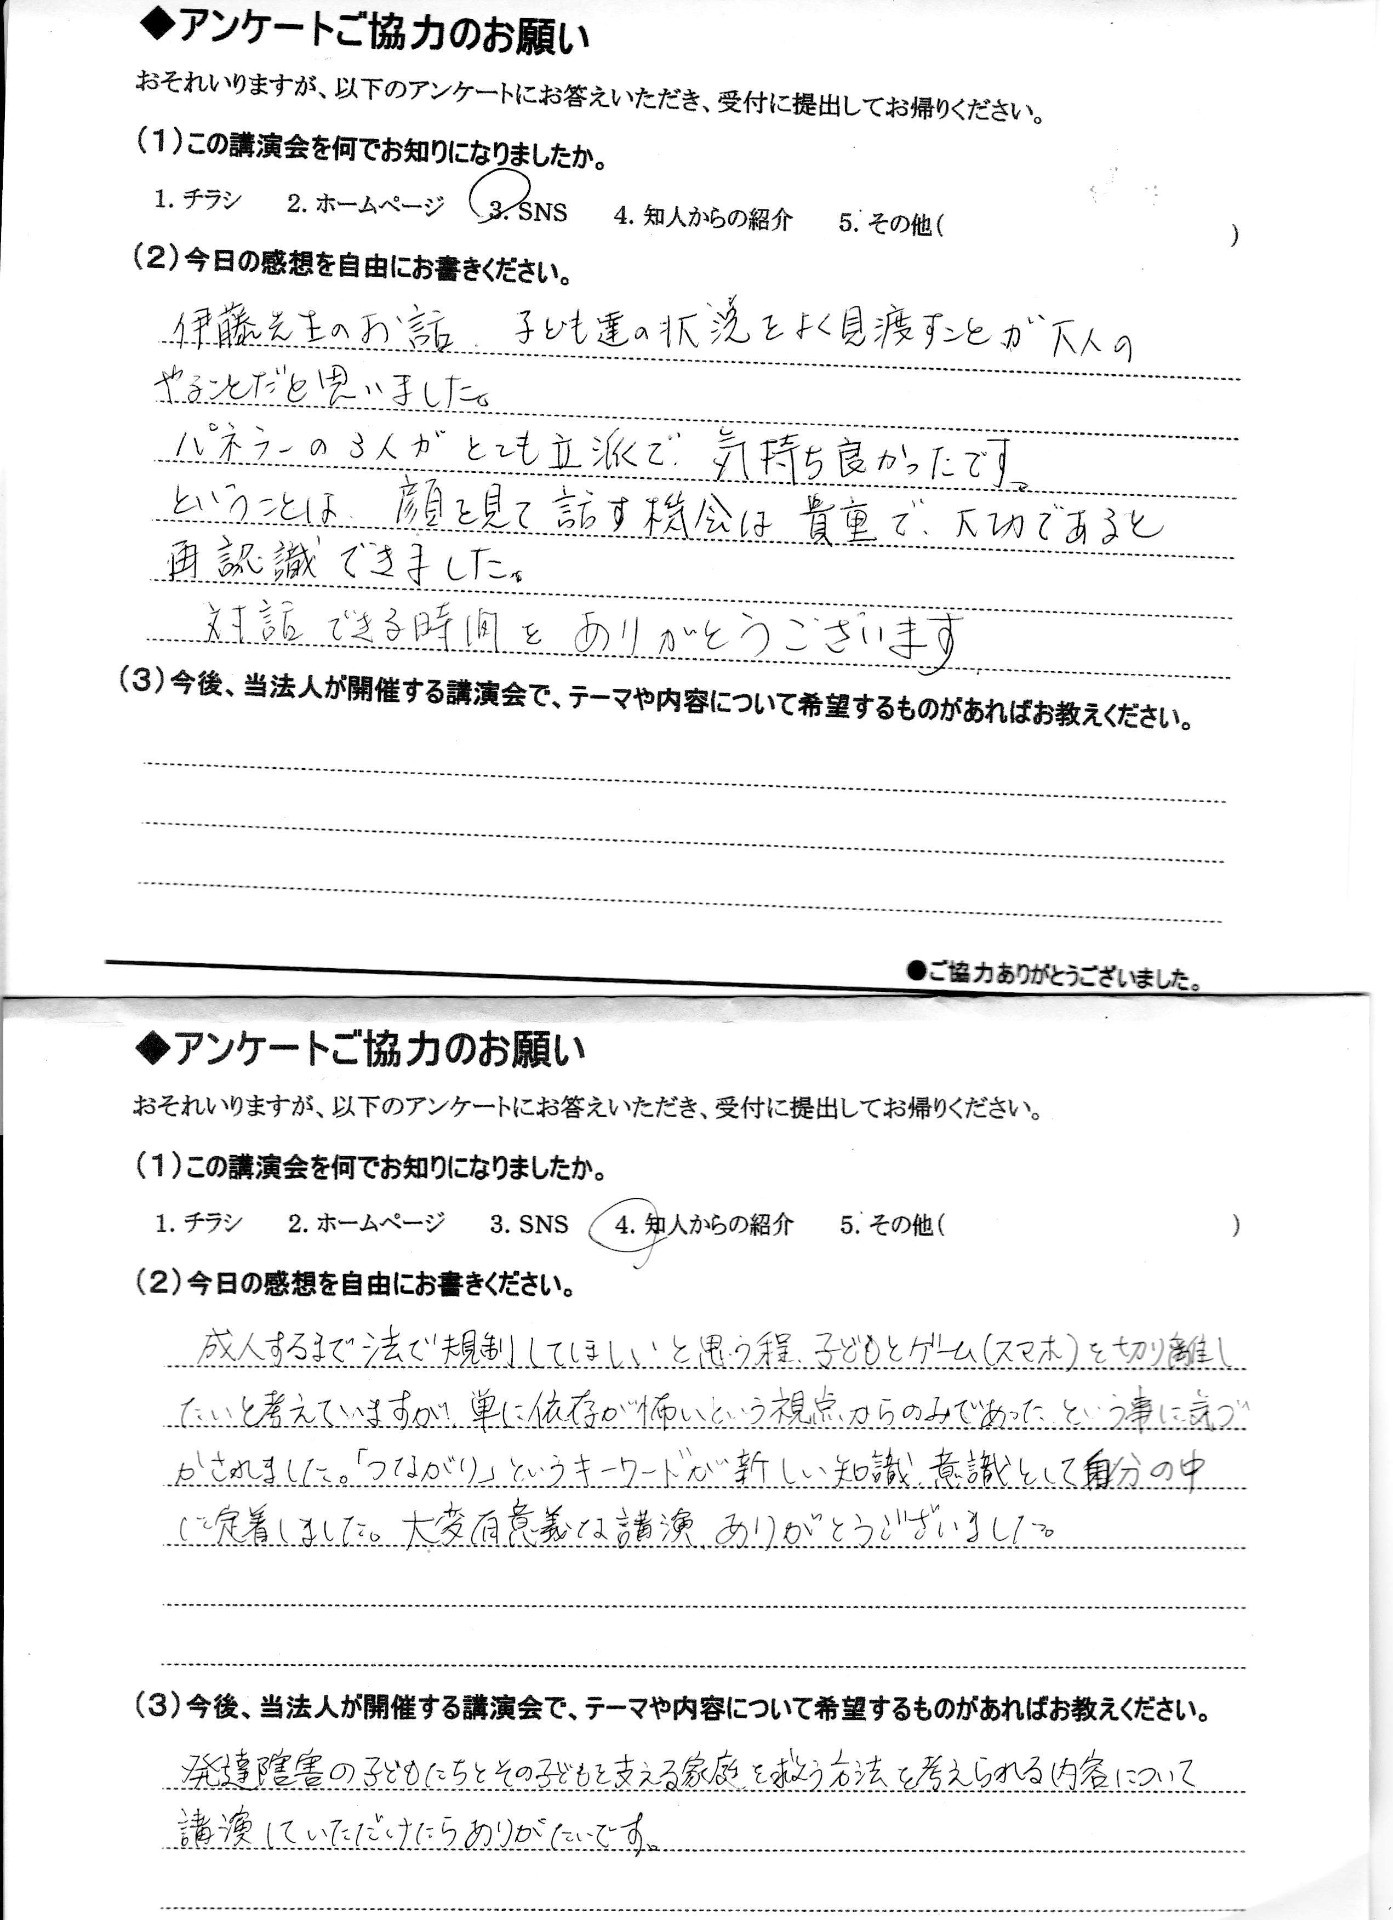 ◆アンケートご協力のお願い
おそれいりますが、以下のアンケートにお答えいただき、受付に提出してお帰りください。
(1)この講演会を何でお知りになりましたか。
1. チラシ 2. ホームページ 3. SNS 4. 知人からの紹介 5. その他( )
(2)今日の感想を自由にお書きください。
伊藤先生のお話、子ども達の状況をよく見渡すことが大人の
やることだと思いました。
パネラーの3人がとても立派で、気持ち良かったです。
ということは、顔を見て話す機会は貴重で、大切であると
再認識できました。
対話できる時間をありがとうございます
(3)今後、当法人が開催する講演会で、テーマや内容について希望するものがあればお教えください。
●ご協力ありがとうございました。
◆アンケートご協力のお願い
おそれいりますが、以下のアンケートにお答えいただき、受付に提出してお帰りください。
(1)この講演会を何でお知りになりましたか。
1. チラシ 2. ホームページ 3. SNS 4. 知人からの紹介 5. その他( )
(2)今日の感想を自由にお書きください。
成人するまで法で規制してほしいと思う程、子どもとゲーム(スマホ)を切り離し
たいと考えていますが、単に依存が怖いという視点からのみであったという事に気づ
かされました。「つながり」というキーワードが新しい知識、意識として自分の中
に定着しました。大変有意義な講演、ありがとうございました。
(3)今後、当法人が開催する講演会で、テーマや内容について希望するものがあればお教えください。
発達障害の子どもたちとその子どもを支える家庭を救う方法を考えられる内容について
講演していただけたらありがたいです。